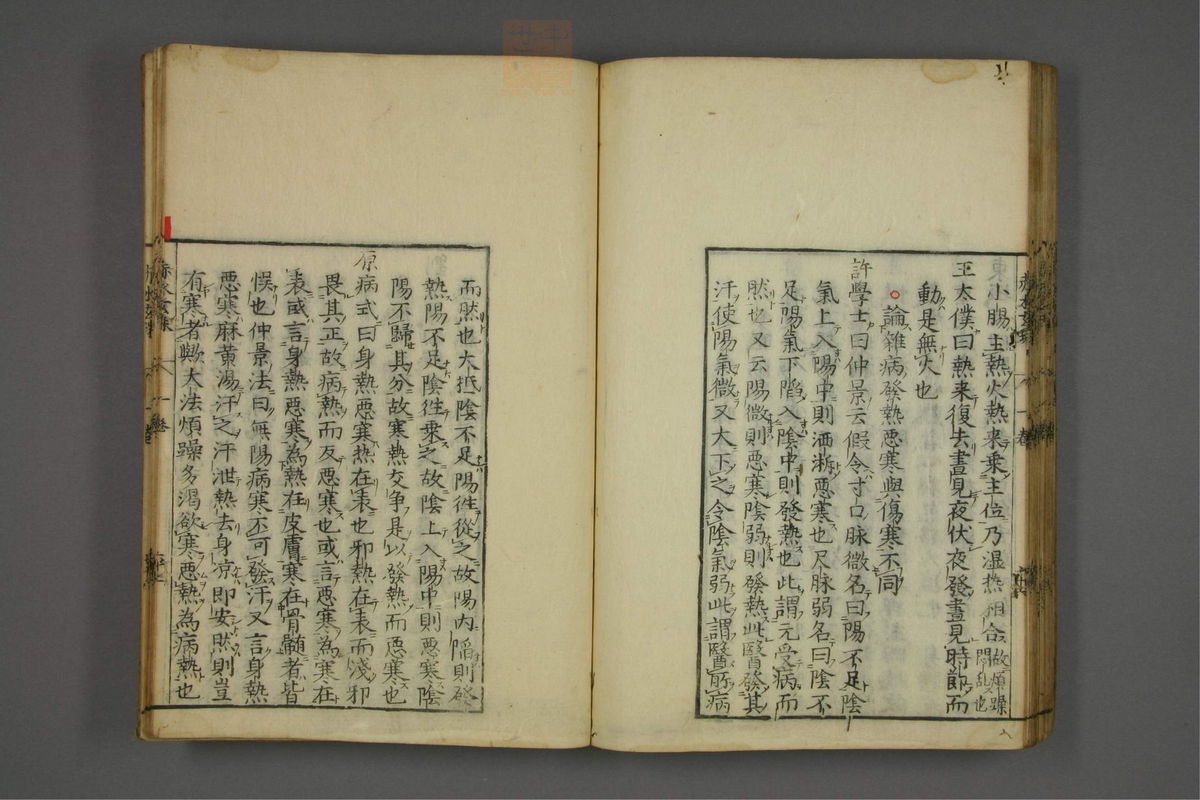 東小腸主熱火熱来乗主位乃湿热相合故煩躁悶乱也
王太僕曰熱来復去晝見夜伏夜發晝見時節而
動是無火也
論雜病發熱惡寒與傷寒不同
許學士曰仲景云假令寸口脉微名曰陽不足陰
氣上入陽中則洒淅惡寒也尺脉弱名曰陰不
足陽氣下陷入陰中則發熱也此謂元受病而
然也又云陽微則惡寒陰弱則發熱此醫發其
汗使陽氣微又大下之令陰氣弱此謂醫所病
而然也大抵陰不足陽徃從之故陽内陷則發
熱陽不足陰徃乗之故陰上入陽中則惡寒陰
陽不歸其分故寒熱交争是以發熱而惡寒也
原病式曰身熱惡寒热在表也邪熱在表而淺邪
畏其正故病熱而反惡寒也或言惡寒為寒在
表或言身熱惡寒為熱在皮膚寒在骨髓者皆
悮也仲景法曰無陽病寒不可發汗又言身熱
惡寒麻黄湯汗之汗泄熱去身凉即安然則豈
有寒者歟大法煩躁多渴欲寒惡熱為病熱也